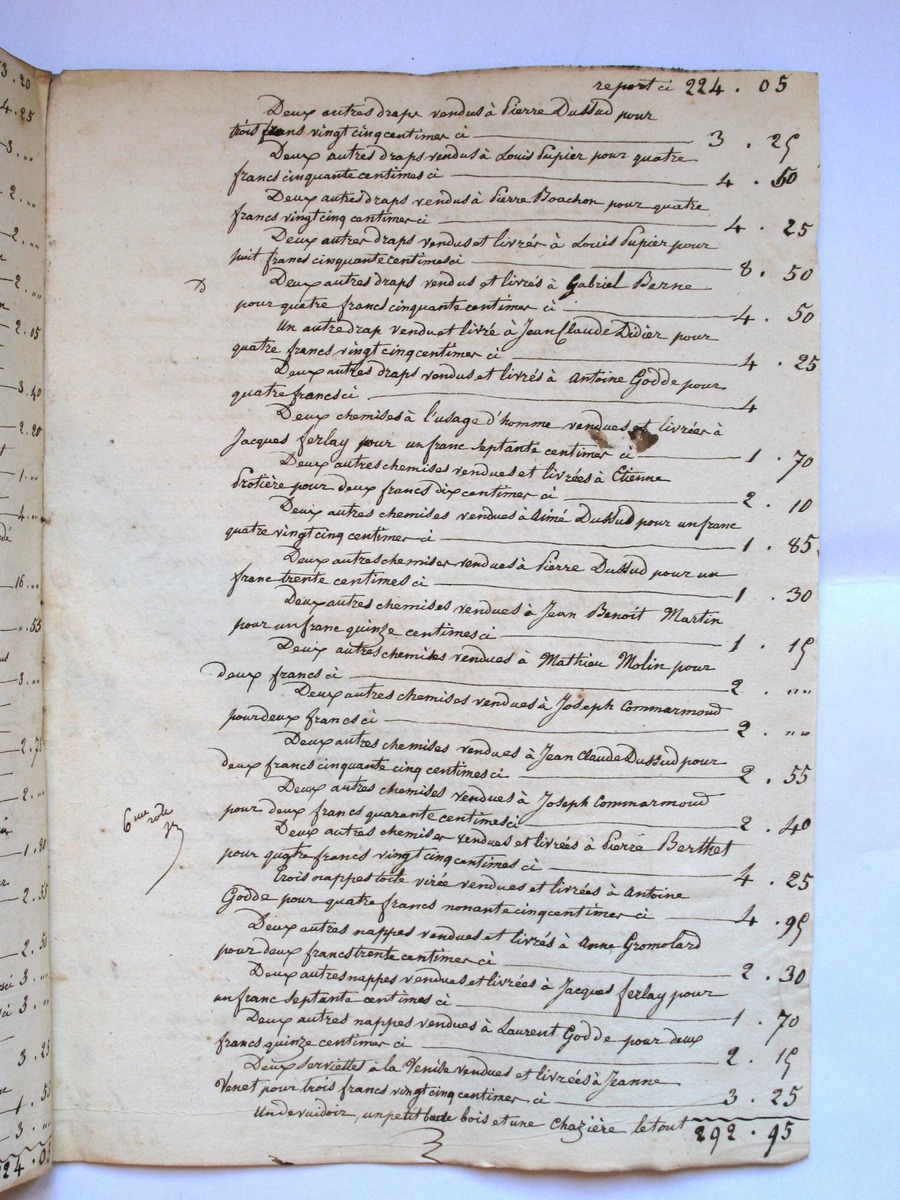 report ci 224 . 05
Deux autres draps vendus à Pierre Dussud pour
trois francs vingt cinq centimes ci 3 . 25
Deux autres draps vendus à Louis Pupier pour quatre
francs cinquante centimes ci 4 . 50
Deux autres draps vendus à Pierre Boachon pour quatre
francs vingt cinq centimes ci 4 . 25
Deux autres draps vendus et livrés à Louis Pupier pour
huit francs cinquante centimes ci 8 . 50
Deux autres draps vendus et livrés à Gabriel Berne
pour quatre francs cinquante centimes ci 4 . 50
Un autre drap vendu et livré à Jean Claude Didier pour
quatre francs vingt cinq centimes ci 4 . 25
Deux autres draps vendus et livrés à Antoine Godde pour
quatre francs ci 4
Deux chemises à l'usage d'homme vendues et livrées à
Jacques ferlay pour un franc septante centimes ci 1 . 70
Deux autres chemises vendues et livrées à Etienne
Protière pour deux francs dix centimes ci 2 . 10
Deux autres chemises vendues à Aimé Dussud pour un franc
quatre vingt cinq centimes ci 1 . 85
Deux autres chemises vendues à Pierre Dussud pour un
franc trente centimes ci 1 . 30
Deux autres chemises vendues à Jean Benoit Martin
pour un franc quinze centimes ci 1 . 15
Deux autres chemises vendues à Mathieu Molin pour
deux francs ci 2 . ""
Deux autres chemises vendues à Joseph Commarmond
pour deux francs ci 2 . ""
Deux autres chemises vendues à Jean Claude Dussud pour
deux francs cinquante cinq centimes ci 2 . 55
Deux autres chemises vendues à Joseph Commarmond
pour deux francs quarante centimes ci 2 . 40
6me role
Deux autres chemises vendues et livrées à Pierre Berthet
pour quatre francs vingt cinq centimes ci 4 . 25
Trois nappes toile virée vendues et livrées à Antoine
Godde pour quatre francs nonante cinq centimes ci 4 . 95
Deux autres nappes vendues et livrés à Anne Gromolard
pour deux francs trente centimes ci 2 . 30
Deux autres nappes vendues et livrées à Jacques ferlay pour
un franc septante centimes ci 1 . 70
Deux autres nappes vendues à Laurent Godde pour deux
francs quinze centimes ci 2 . 15
Deux serviettes à la Venise vendues et livrées à Jeanne
Venet pour trois francs vingt cinq centimes ci 3 . 25
Un devuidoir, un petit bois et une Chazière le tout 292 . 95